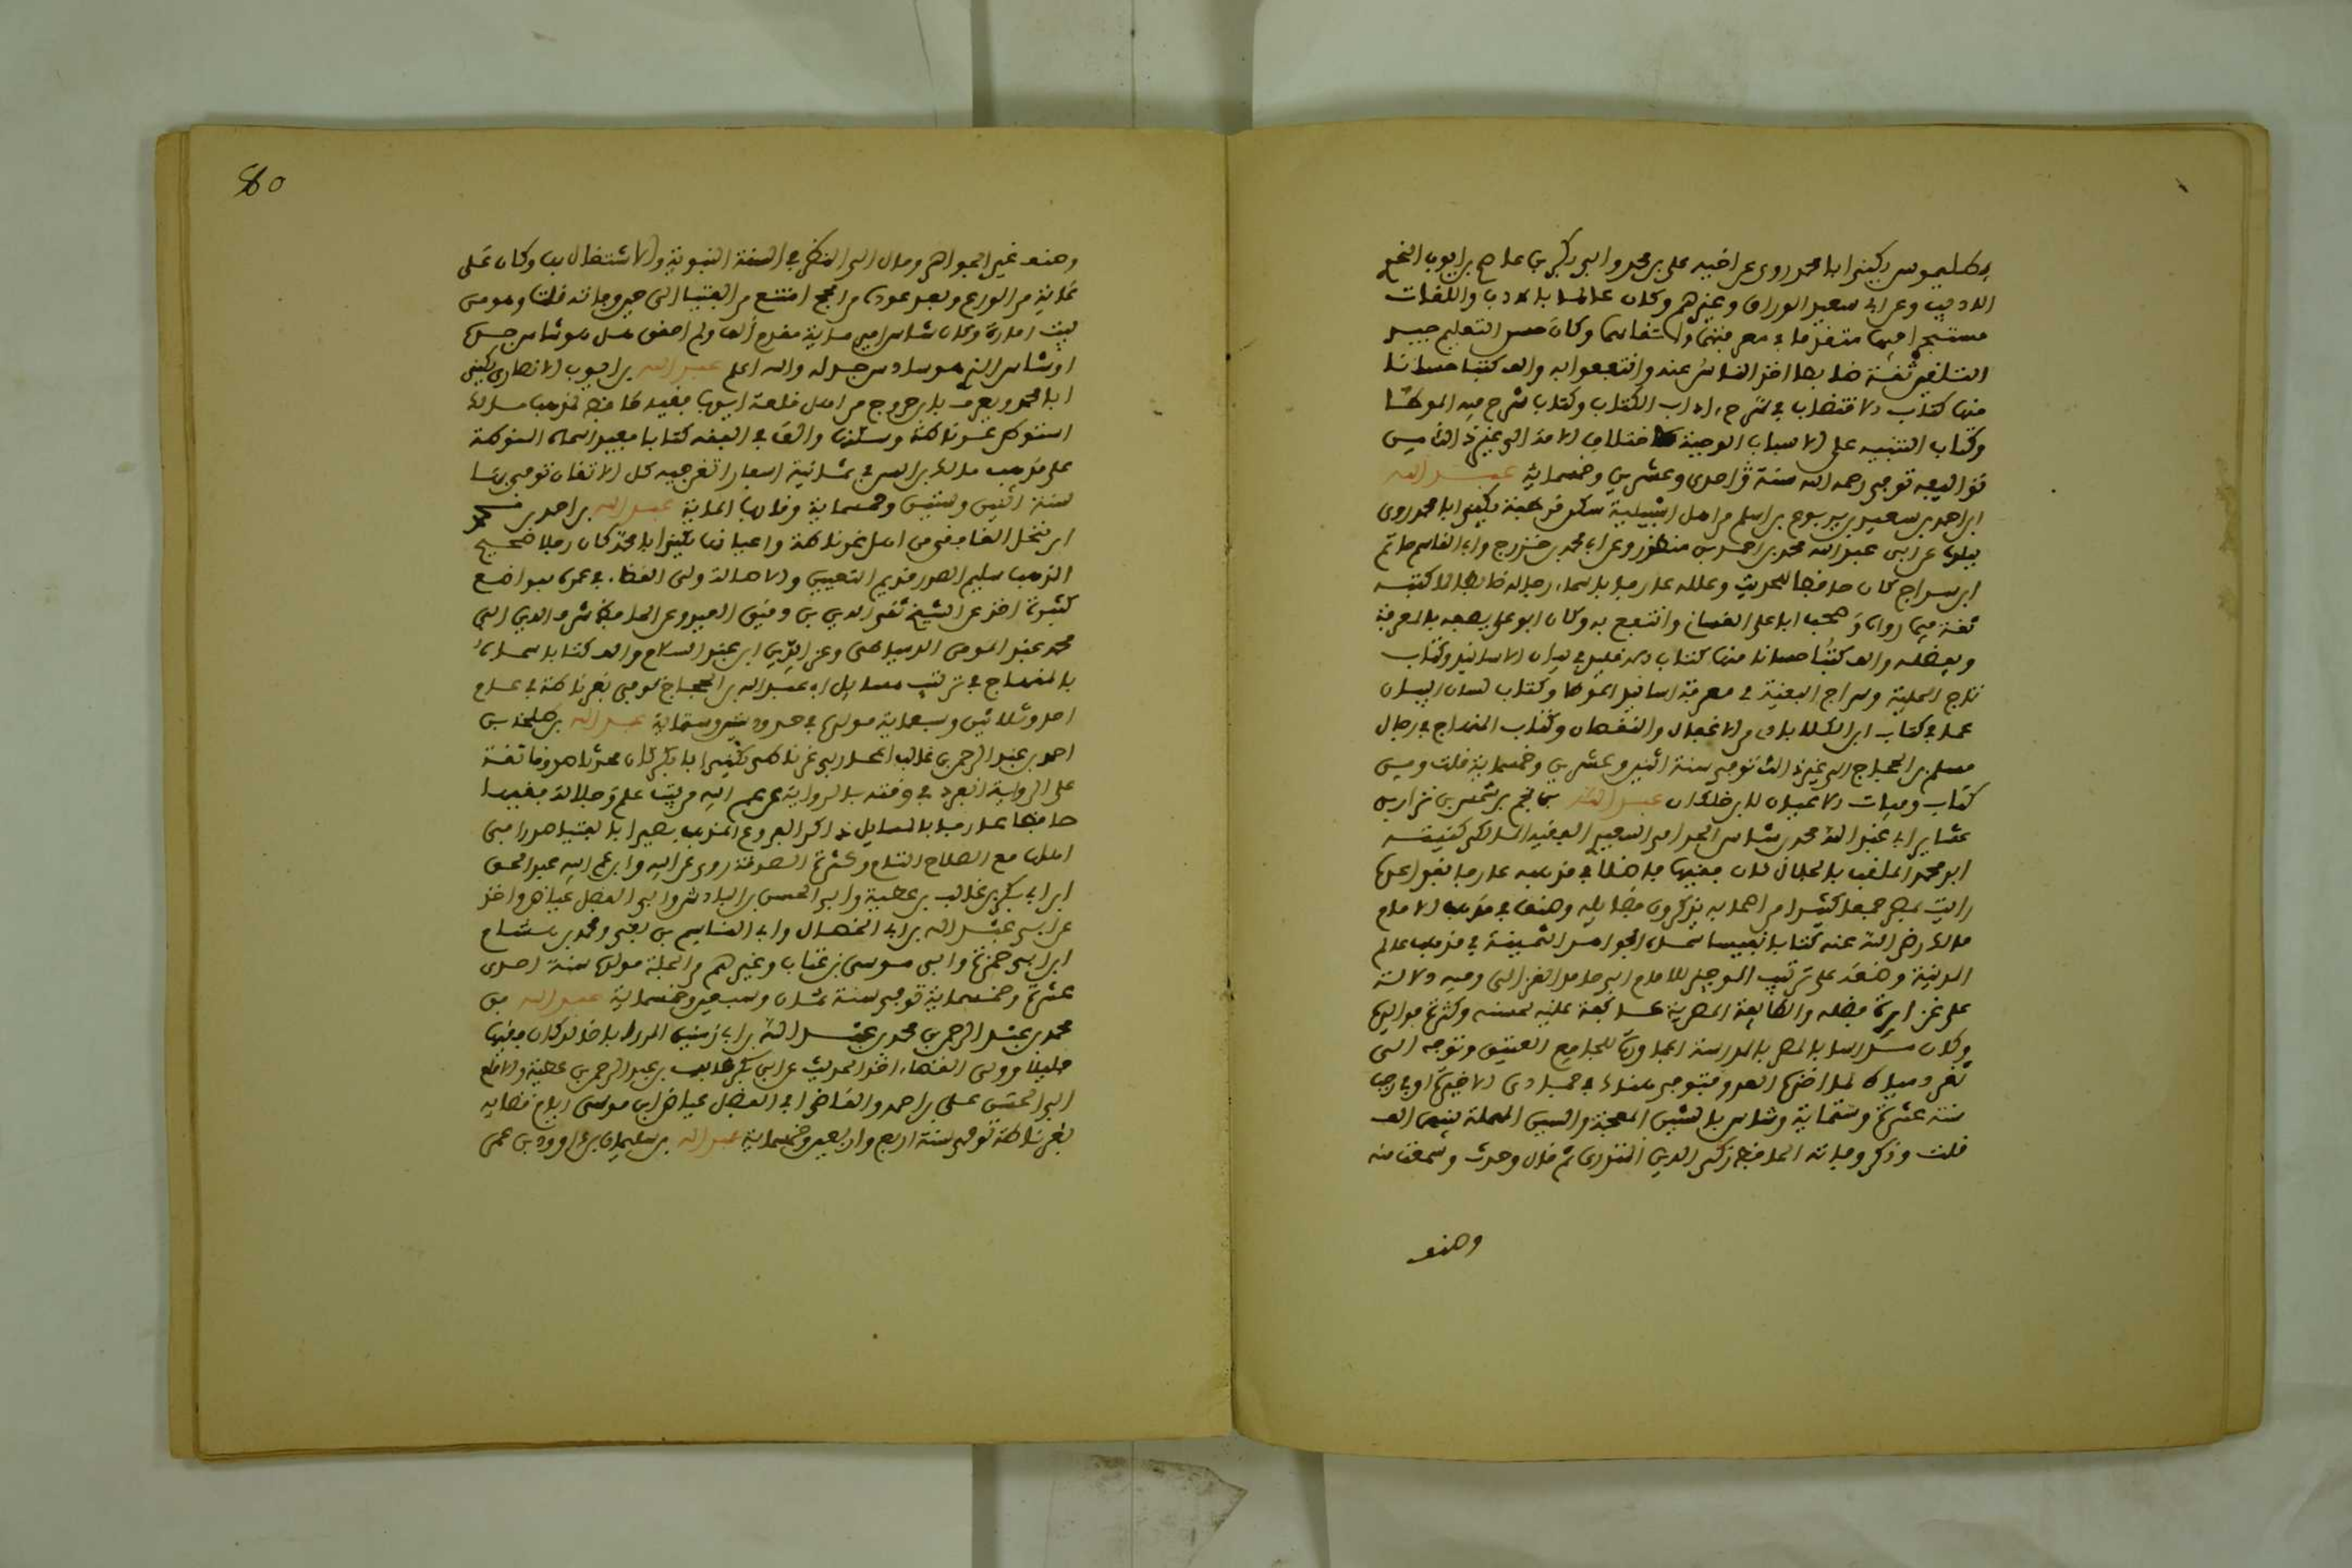 بطليموس يكنى ابا محمد روى عن اخيه على بن محمد وابى بكر بن عاصم بن ايوب
الاديب وعن ابى سعيد الوراق وغيرهم وكان عالما بالادب واللغات
مستبحرا فيها متقدما فى معرفتها واتقانها وكان حسن التعليم جيد
التلقين ثقة ضابطا اخذ الناس عنه وانتفعوا به والف كتبا حسانا
منها كتاب الاقتضاب فى شرح اداب الكتاب وكتاب شرح فيه الموطا
وكتاب التنبيه على الاسباب الموجبة لاختلاف الامة الى غير ذلك من
تواليفه توفى رحمه الله سنة احدى وعشرين وخمسماية عبد الله
ابن احمد بن سعيد بن يربوع من اهل اشبيلية سكن قرطبة يكنى ابا محمد روى
ببلده عن ابى عبد الله محمد بن احمد بن منظور وعن ابى محمد بن خزرج وابى القاسم حاتم
ابن سراج كان حافظا للحديث وعلله عارفا باسماء رجاله ضابطا لما كتبه
ثقة فيما رواه وصحب ابا على الغسانى وانتفع به وكان ابو على يصفه بالمعرفة
ويفضله والف كتبا حسانا منها كتاب الاقليد فى بيان الاسانيد وكتاب
تاج الحلية وسراج البغية فى معرفة اسانيد الموطا وكتاب لسان البيان
عما فى كتاب ابى نصر الكلاباذى من الاغفال والنقصان وكتاب المنهاج فى رجال
مسلم بن الحجاج الى غير ذلك توفى سنة اثنين وعشرين وخمسماية قلت ومن
كتاب وفيات الاعيان لابن خلكان عبد الله بن نجم بن شاس بن نزار بن
عشاير بن عبد الله بن محمد بن شاس الجذامى السعدى الفقيه المالكى كنيته
ابو محمد الملقب بالجلال كان فقيها فاضلا فى مذهبه عارفا بقواعده
رايت بمصر جمعا كثيرا من اصحابه يذكرون فضايله وصنف فى مذهب الامام
مالك رضى الله عنه كتابا نفيسا سماه الجواهر الثمينة فى مذهب عالم
المدينة وضعه على ترتيب الوجيز للامام ابى حامد الغزالى وفيه دلالة
على غزارة فضله والطايفة المصرية عاكفة عليه لحسنه وكثرة فوايده
وكان مدرسا بمصر بالمدرسة المجاورة للجامع العتيق وتوجه الى
ثغر دمياط لما اخذه العدو فتوفى هناك فى جمادى الاخيرة او فى رجب
سنة عشرة وستماية وشاس بالشين المعجمة والسين المهملة بينهما الف
قلت وذكر وفاته الحافظ زكى الدين المنذرى ثم قال وحدث وسمعت منه
وصنف
80
وصنف غير الجواهر ومال الى النظر فى السنة النبوية والاشتغال بها وكان على
غاية من الورع وبعد عوده من الحج امتنع من الفتيا الى حين وفاته قلت وهو من
بيت امارة وكان شاس امير ماية مقدم الف ولم احقق هل هو شاس جده
او شاس الذى هو سادس جد له والله اعلم عبد الله بن ايوب الانصارى يكنى
ابا محمد ويعرف بابن خروج من اهل قلعة ايوب فقيه حافظ لمذهب مالك
استوطن غرناطة وسكنها والف فى الفقه كتابا مفيدا سماه المنوطة
على مذهب مالك بن انس فى ثمانية اسفار اتقن فيه كل الاتقان توفى بها
سنة اثنين وستين وخمسماية وقارب الماية عبد الله بن احمد بن
ابن تخل الغافقى من اهل غرناطة واعيانها يكنى ابا محمد كان رجلا صحيح
المذهب سليم الصدر قديم التعيين والاصالة ولى القضاء فى عمره بمواضع
كثيرة اخذ عن الشيخ تقى الدين بن دقيق العيد وعن الحافظ شرف الدين ابى
محمد عبد المومن الدمياطى وعن الدين ابن عبد السلام والف كتابا سماه
بالمنهاج فى ترتيب مسايل ابن عبد الله بن الحجاج توفى بغرناطة فى عام
احد وثلاثين وسبعماية مولده فى حدود ستين وستماية عبد الله بن طلحة بن
احمد بن عبد الرحمن بن غالب المحاربى غرناطى يكنى ابا بكر كان محدثا صدوقا ثقة
على الرواية انفرد فى وقته بالرواية عن عم ابيه من بيت علم وجلالة فقيها
حافظا عارفا بالمسايل ذاكرا لفروع المذهب بصيرا بالفتيا صدرا فى
اهلها مع الصلاح التام وكثرة الصدقة روى عن ابيه وابن عم ابيه عبد الحق
ابن ابى بكر بن غالب بن عطية وابى الحسن بن الباذش وابى الفضل عياض واخذ
عن ابى عبد الله بن ابى الخصال وابى القاسم بن بقى ومحمد بن هشام
ابن ابى حمزة وابى موسى بن عتاب وغيرهم من الجلة مولده سنة احدى
عشرة وخمسماية توفى سنة ثمان وسبعين وخمسماية عبد الله بن
محمد بن عبد الرحمن بن محمد بن عبد الله بن ابى زمنين المرى باخالد كان فقيها
جليلا وولى القضاء اخذ الحديث عن ابى بكر غالب بن عبد الرحمن بن عطية والامام
ابى الحسن على بن احمد والقاضى ابى الفضل عياض ابن موسى ايام قضايه
بغرناطة توفى سنة اربع واربعين وخمسماية عبد الله بن سليمان بن داوود بن عمر